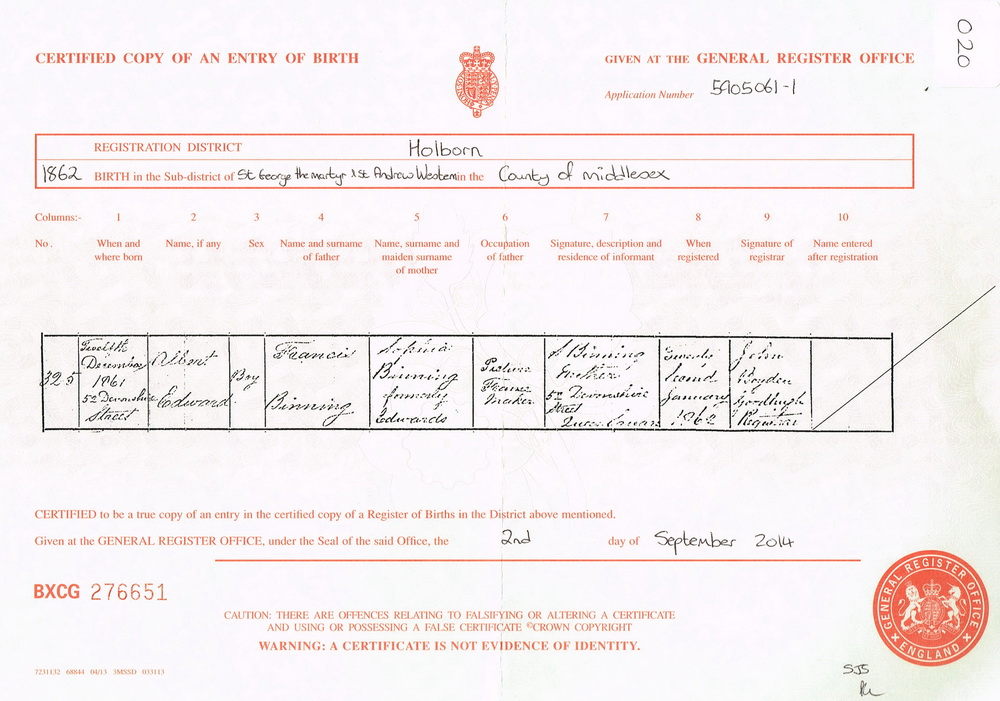 020
CERTIFIED COPY OF AN ENTRY OF BIRTH
GIVEN AT THE GENERAL REGISTER OFFICE
Application Number 5905061-1
REGISTRATION DISTRICT Holborn
1862 BIRTH in the Sub-district of St George the martyr & St Andrew Western in the County of middlesex
Columns:- 1 2 3 4 5 6 7 8 9 10
No. When and where born
Name, if any
Sex
Name and surname of father
Name, surname and maiden surname of mother
Occupation of father
Signature, description and residence of informant
When registered
Signature of registrar
Name entered after registration
325
Twelfth
December
1861
52 Devonshire
Street
Albert
Edward
Boy
Francis
Binning
Sophia
Binning
formerly
Edwards
Picture
Frame
maker
S Binning
Mother
52 Devonshire
Street
Queen Square
Twenty
second
January
1862
John
Boyden
Registrar
CERTIFIED to be a true copy of an entry in the certified copy of a Register of Births in the District above mentioned.
Given at the GENERAL REGISTER OFFICE, under the Seal of the said Office, the 2nd day of September 2014
BXCG 276651
CAUTION: THERE ARE OFFENCES RELATING TO FALSIFYING OR ALTERING A CERTIFICATE
AND USING OR POSSESSING A FALSE CERTIFICATE ©CROWN COPYRIGHT
WARNING: A CERTIFICATE IS NOT EVIDENCE OF IDENTITY.
GENERAL REGISTER OFFICE
ENGLAND
7231132 68844 04/13 3MSSD 033113
SJS